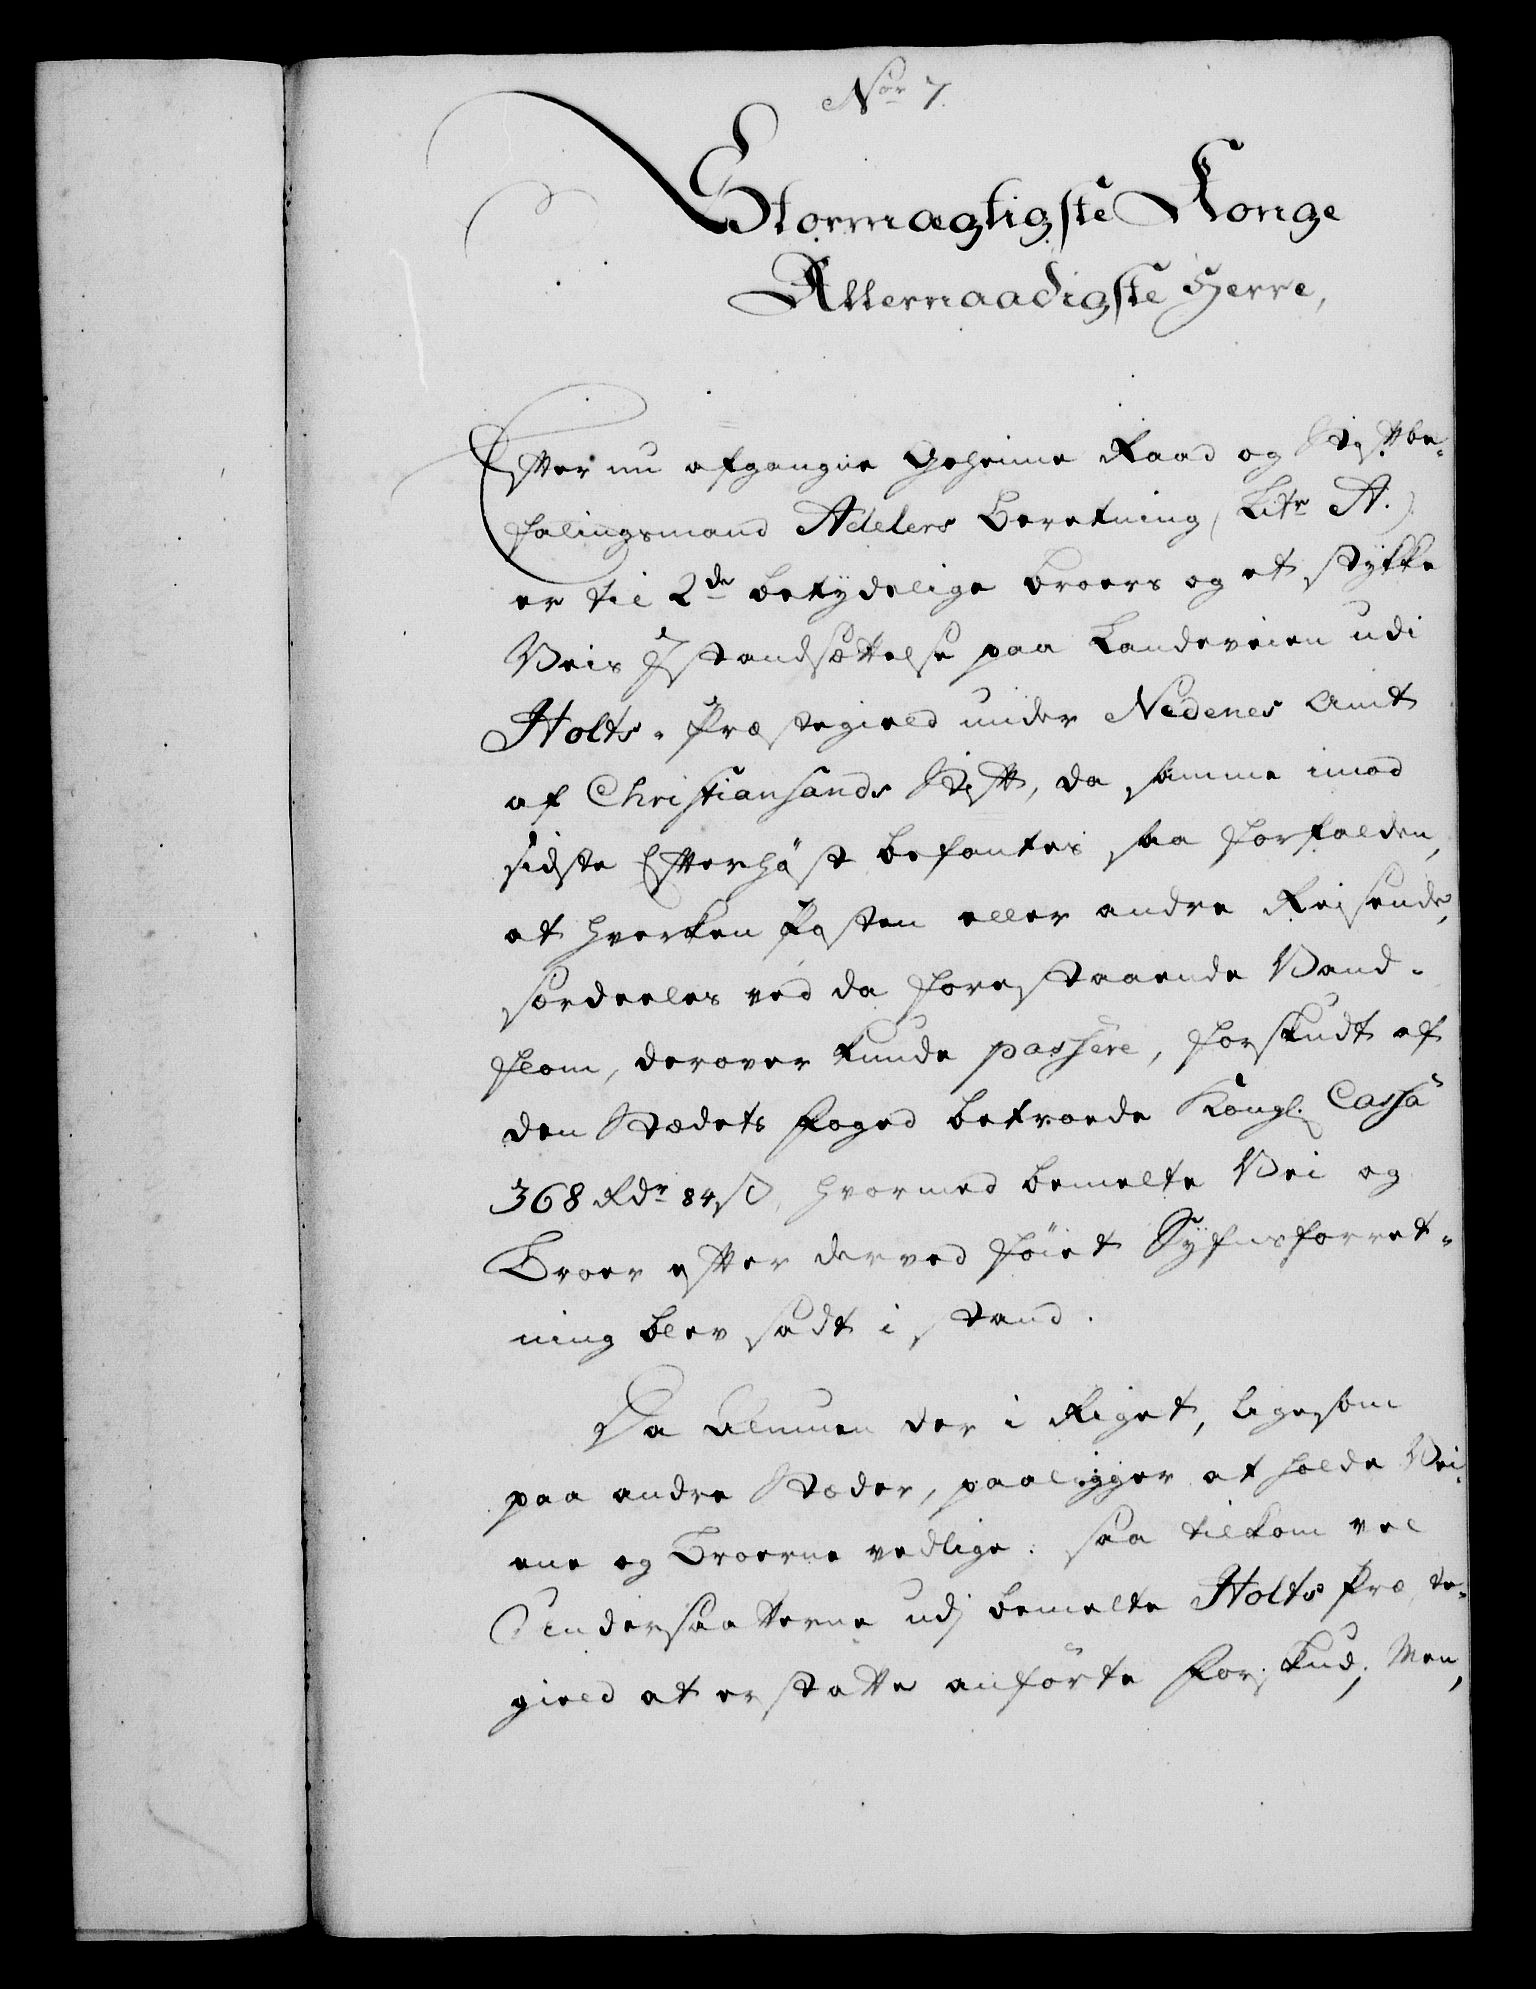 No 7.
Stormægtigste Konge
Allernaadigste Herre,
Efter nu afgangne Geheime Raad og Stiftbe-
falingsmand Adelers Beretning (Litr A.)
er til 2de betydelige Broers og et stykke
Veis Istandsættelse paa Landeveien udi
Holts-Præstegield under Nedenes Amt
af Christiansands Stift, da samme imod
sidste Efterhøst befantes saa forfalden,
at hverken Posten eller andre Reisende,
særdeeles ved da forestaaende Vand-
flom, derover kunde passere, forskudt af
den Stædets Foged betroede Kongl. Cassa
368 Rdr 84 s, hvormed bemelte Vei og
Broer efter derved føiet Syfnsforret-
ning blev sadt i stand.
Da Almuen der i Riget, ligesom
paa andre Stæder, paaligger at holde Vei-
ene og Broerne vedlige: saa tilkom vel
Undersaatterne udj bemelte Holts Præste-
gield at erstatte anførte Forskud; Men,